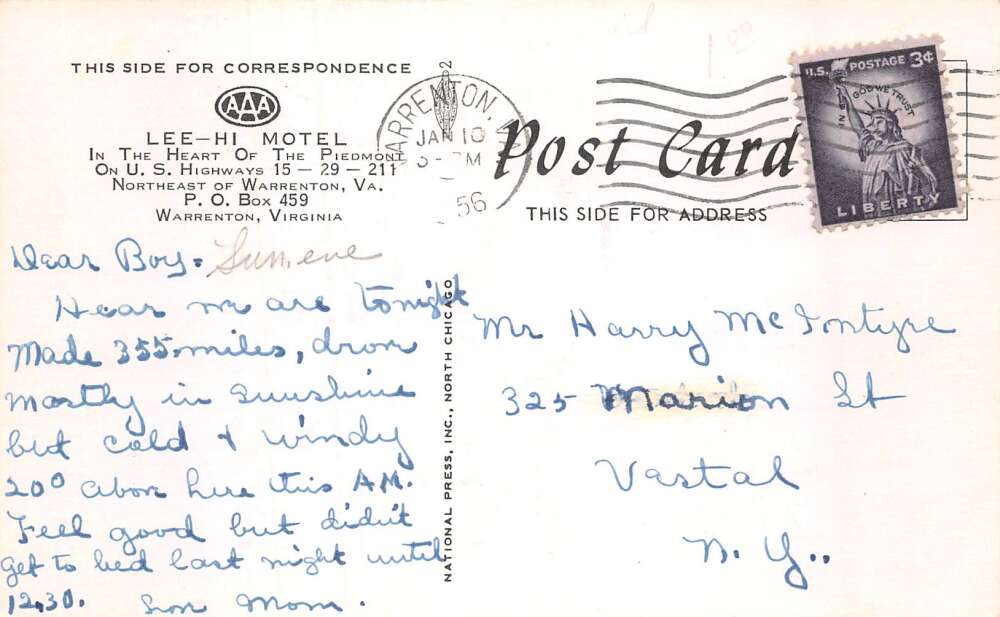 1 00
THIS SIDE FOR CORRESPONDENCE
AAA
LEE-HI MOTEL
IN THE HEART OF THE PIEDMONT
ON U. S. HIGHWAYS 15 - 29 - 211
NORTHEAST OF WARRENTON, VA.
P. O. BOX 459
WARRENTON, VIRGINIA
WARRENTON,
JAN 10
PM
56
Post Card
THIS SIDE FOR ADDRESS
U.S. POSTAGE 3¢
IN GOD WE TRUST
LIBERTY
Dear Boy- Sun. eve
Hear we are tonight
Made 355 miles, drove
mostly in sunshine
but cold & windy
20° above here this A.M.
Feel good but didn't
get to bed last night until
12.30. Mom.
NATIONAL PRESS, INC., NORTH CHICAGO
Mr Harry McIntyre
325 Marion St
Vestal
N. Y..